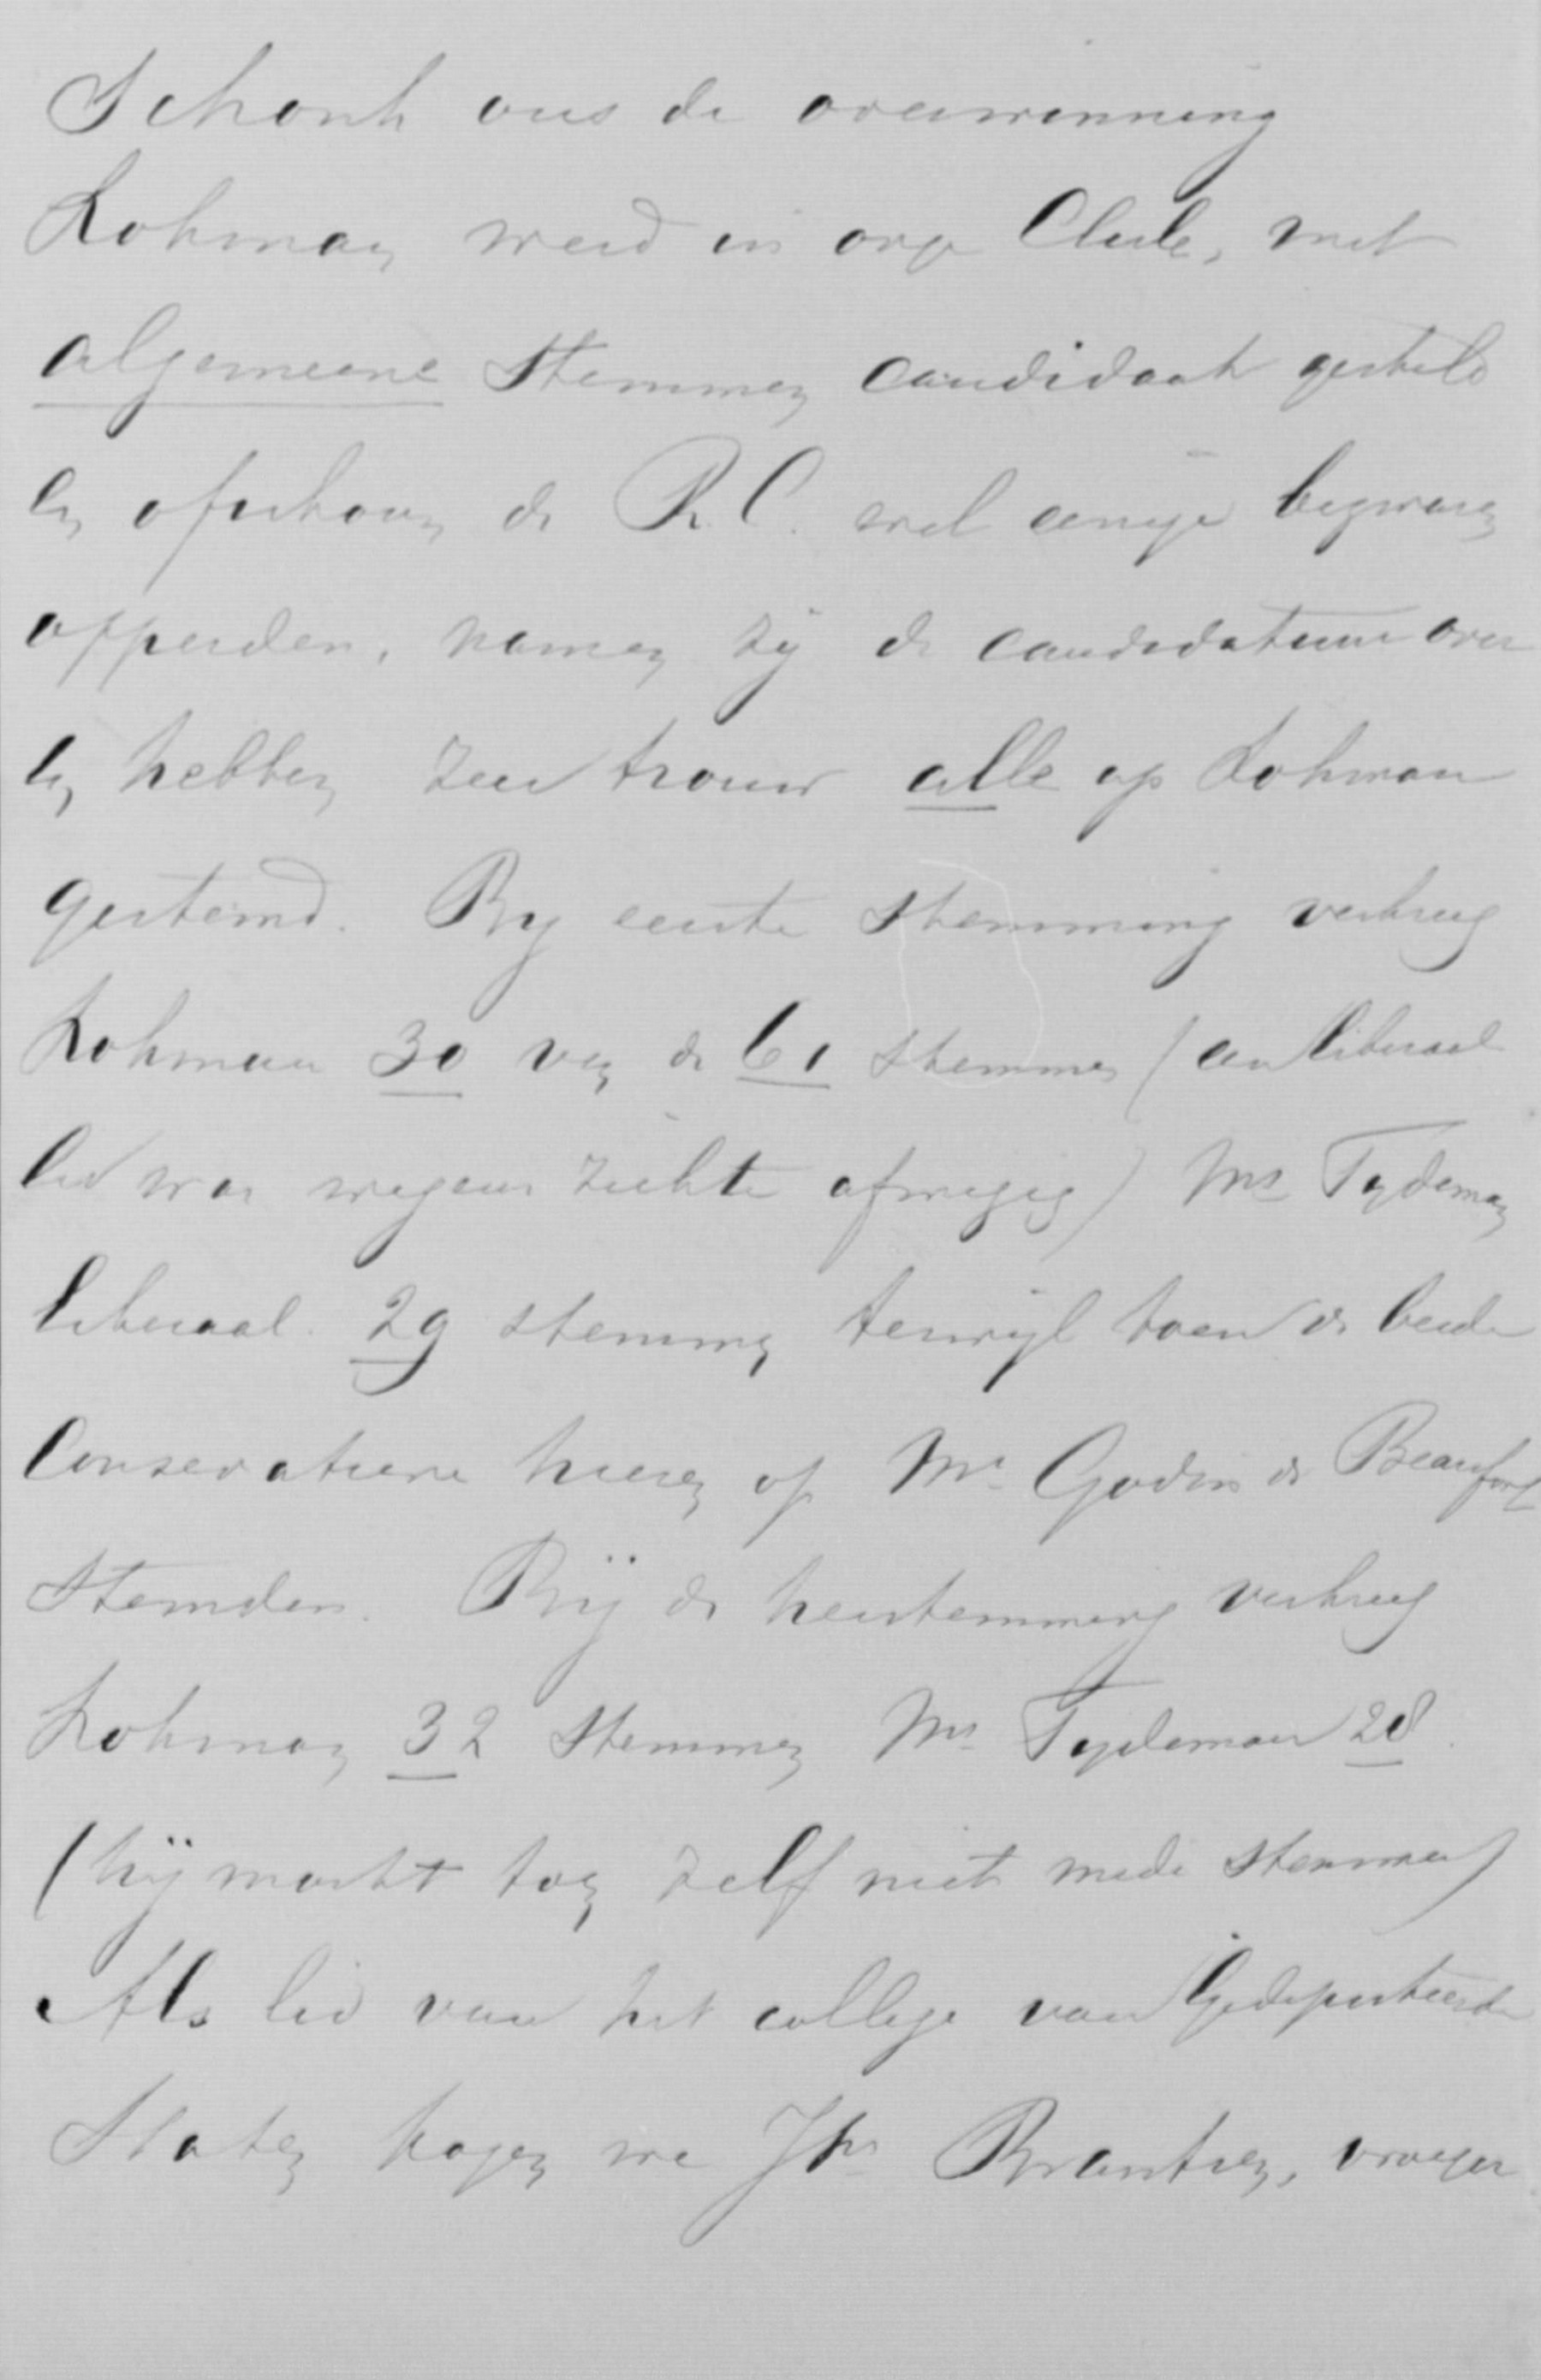 Schonk ons de overwinning
Lohman werd in onze Club, met
algemeene stemmen candidaat gesteld
en ofschoon de R.C. wel eenige bezwaren
opperden, namen zij de candidatuur over
en hebben zeer trouw alle op Lohman
gestemd. By eerste stemming verkreeg
Lohman 30 van de 61 stemmen (een liberaal
lid was wegens ziekte afwezig) Mr Tydeman
liberaal 29 stemmen terwijl toen de beide
Conservatieve heeren op Mr Godin de Beaufort
stemden. Bij de herstemming verkreeg
Lohman 32 stemmen Mr Tydeman 28.
(hij mocht toen zelf niet mede stemmen)
Als lid van het college van Gedeputeerde
Staten kozen we Jhr Brantsen, vroeger